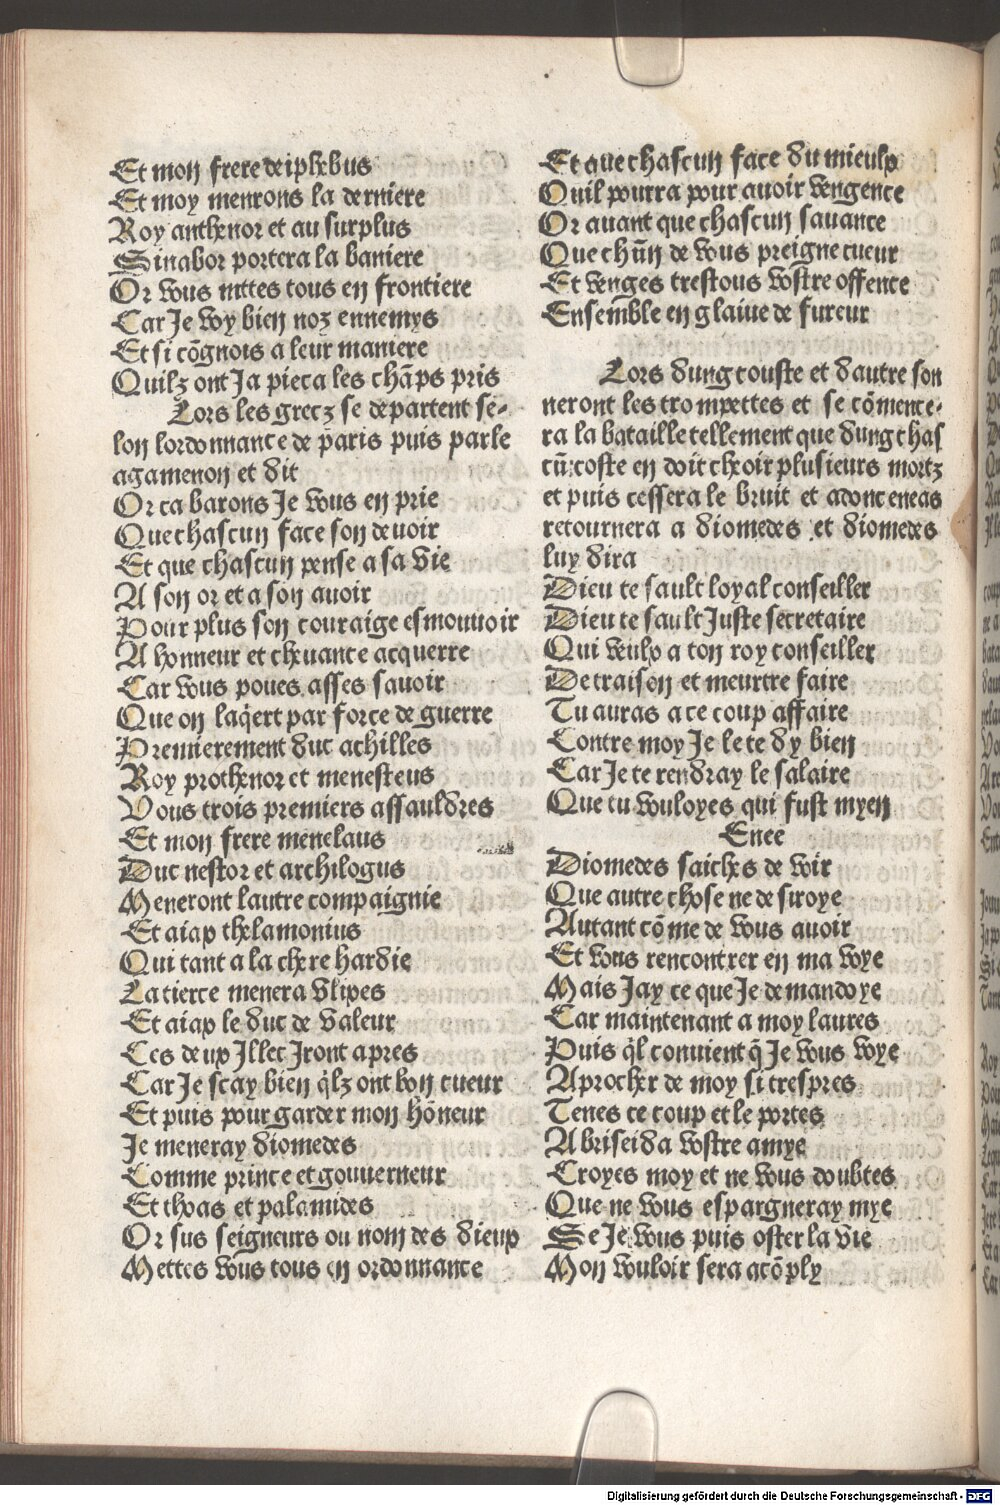 Et mon frere deiphebus
Et moy menrons la derniere
Roy anthenor et au surplus
Sinabor portera la baniere
Or vous mttes tous en frontiere
Car Je voy bien noz ennemys
Et si cõgnois a leur maniere
Quilz ont Ja pieca les chãps pris
Lors les grecz se departent se-
lon lordonnance de paris puis parle
agamenon et dit
Or ca barons Je vous en prie
Que chascun face son devoir
Et que chascun pense a sa vie
A son or et a son avoir
Pour plus son couraige esmouuoir
A honneur et cheuance acquerre
Car vous poues asses sauoir
Que on laq̃ert par force de guerre
Premierement duc achilles
Roy prothenor et menesteus
Vous trois premiers assauldres
Et mon frere menelaus
Duc nestor et archilogus
Meneront lautre compaignie
Et aiax thelamonius
Qui tant a la chere hardie
La tierce menera vlixes
Et aiax le duc de valeur
Ces deux Jllec Jront apres
Car Je scay bien q̃lz ont bon cueur
Et puis pour garder mon hõneur
Je meneray diomedes
Comme prince et gouuerneur
Et thoas et palamides
Or sus seigneurs ou nom des dieux
Mettes vous tous en ordonnance
Et que chascun face du mieulx
Quil pourra pour auoir vengence
Or auant que chascun sauance
Que chũn de vous preigne cueur
Et venges trestous vostre offence
Ensemble en glaiue de fureur
Lors dung couste et dautre son
neront les trompettes et se cõmence-
ra la bataille tellement que dung chas
cũ: coste en doit cheoir plusieurs mortz
et puis cessera le bruit et adonc eneas
retournera a diomedes et diomedes
luy dira
Dieu te sault loyal conseiller
Dieu te sault Juste secretaire
Qui veulx a ton roy conseiller
De traison et meurtre faire
Tu auras a ce coup affaire
Contre moy Je le te dy bien
Car Je te rendray le salaire
Que tu vouloyes qui fust myen
Enee
Diomedes saiches de voir
Que autre chose ne desiroye
Autant cõme de vous auoir
Et vous rencontrer en ma voye
Mais Jay ce que Je demandoye
Car maintenant a moy laures
Puis q̃l conuient q̃ Je vous voye
Aprocher de moy si trespres
Tenes ce coup et le portes
A briseida vostre amye
Croyes moy et ne vous doubtes
Que ne vous espargneray mye
Se Je vous puis oster la vie
Mon vouloir sera acõply
Digitalisierung gefördert durch die Deutsche Forschungsgemeinschaft - DFG